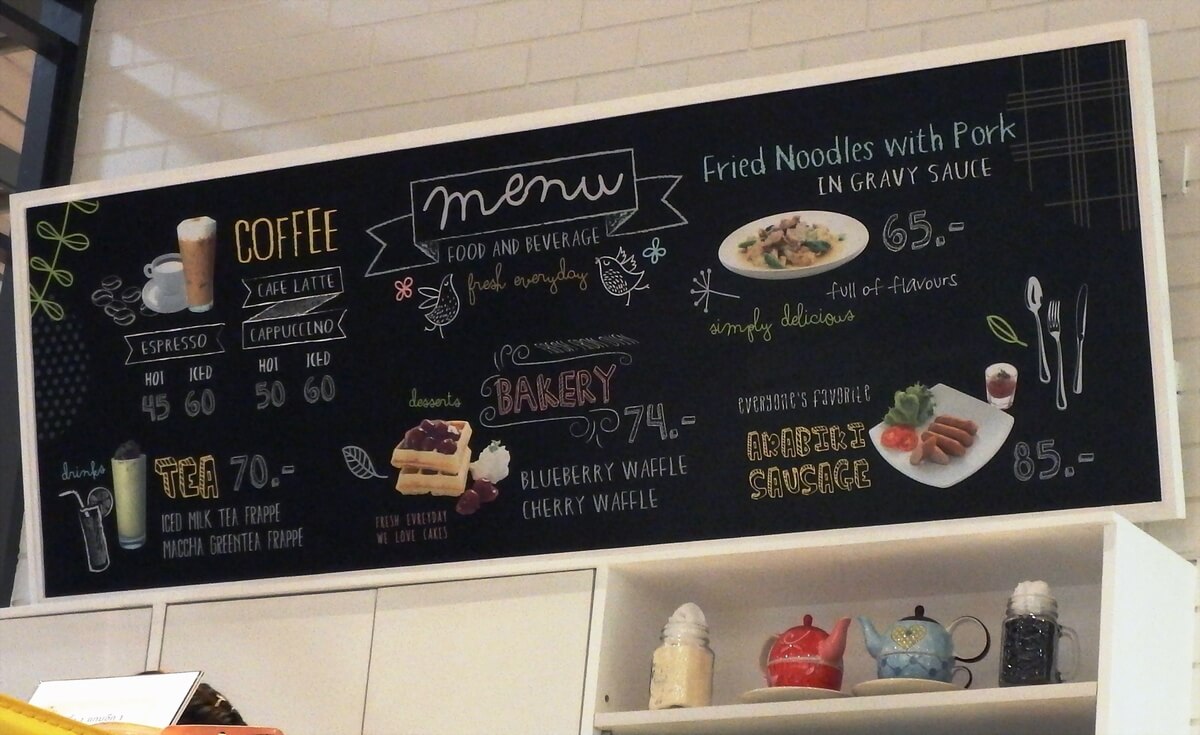 menu
FOOD AND BEVERAGE
fresh everyday
COFFEE
CAFE LATTE
CAPPUCCINO
ESPRESSO
HOT ICED
45 60
HOT ICED
50 60
drinks
TEA 70.-
ICED MILK TEA FRAPPE
MACCHA GREENTEA FRAPPE
desserts
BAKERY
74.-
BLUEBERRY WAFFLE
CHERRY WAFFLE
FRESH EVREYDAY
WE LOVE CAKES
Fried Noodles with Pork
IN GRAVY SAUCE
65.-
full of flavours
simply delicious
everyone's favorite
ARABIKI
SAUSAGE
85.-